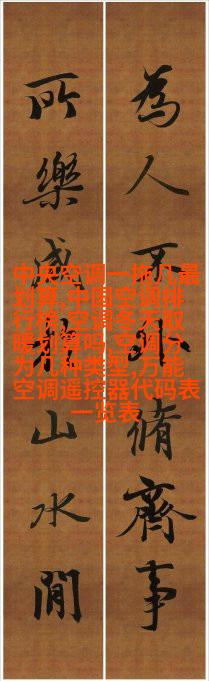 為人不脩齊事
所樂咸山水間
中央空调一拖几最
划算,中国空调排
行榜,空调冬天取
暖划算吗,空调分
为几种类型,万能
空调遥控器代码表
一览表